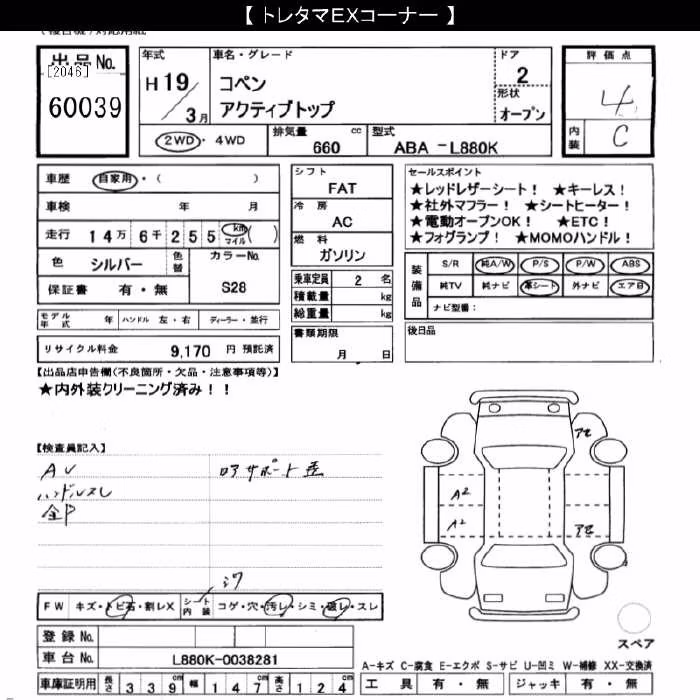 【 トレタマEXコーナー 】
出品No.
[2046]
60039
年式
H 19 / 3月
車名・グレード
コペン
アクティブトップ
ドア
2
形状
オープン
評価点
4
内装
C
2WD・4WD
排気量 cc
660
型式
ABA -L880K
車歴 自家用・( )
車検 年 月
走行 14万6千255 km マイル( )
色 シルバー 色替
カラーNo.
S28
保証書 有・無
シフト
FAT
冷房
AC
燃料
ガソリン
乗車定員 2 名
積載量 kg
総重量 kg
セールスポイント
★レッドレザーシート! ★キーレス!
★社外マフラー! ★シートヒーター!
★電動オープンOK! ★ETC!
★フォグランプ! ★MOMOハンドル!
装備品
S/R 純A/W P/S P/W ABS
純TV 純ナビ 革シート 外ナビ エアB
ナビ型番:
モデル年式 年 ハンドル 左・右 ディーラー・並行
リサイクル料金 9,170 円 預託済
書類期限
月 日
後日品
【出品店申告欄(不良箇所・欠品・注意事項等)】
★内外装クリーニング済み!!
【検査員記入】
AV
ハンドルスレ
全P
ロアサポート歪
アセ
A2
A2
アセ
シワ
FW キズ・トビ石・割レX
シート内装 コゲ・穴・汚レ・シミ・破レ・スレ
スペア
登録No.
車台No. L880K-0038281
A-キズ C-腐食 E-エクボ S-サビ U-凹ミ W-補修 XX-交換済
車庫証明用 長さ 339 cm 幅 147 cm 高さ 124 cm
工具 有・無 ジャッキ 有・無